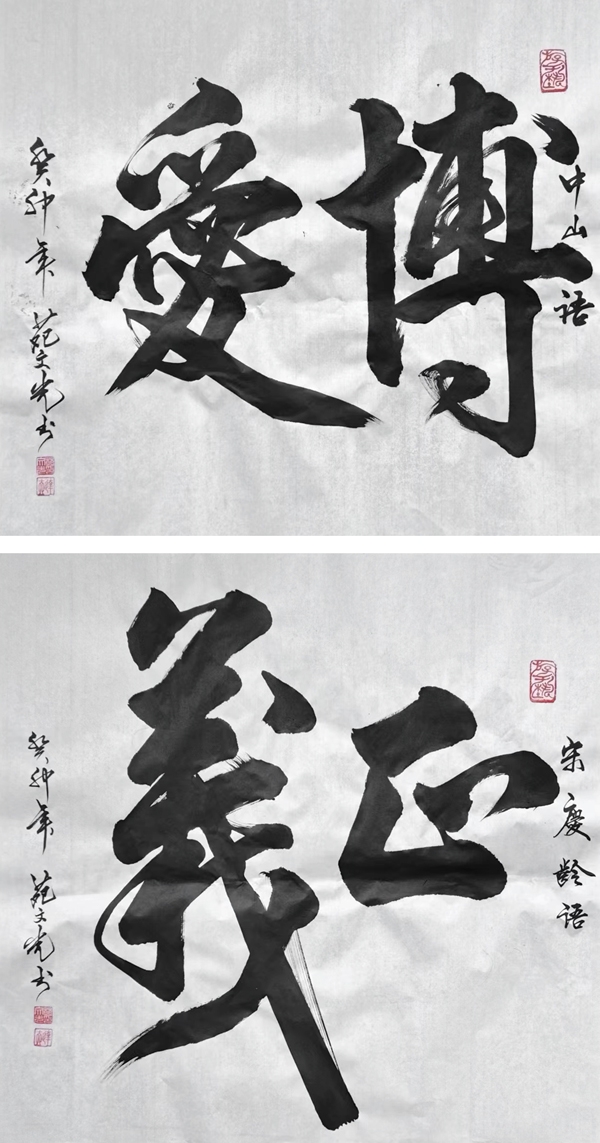 中山语
博愛
癸卯年 苑文光书
宋慶龄语
正義
癸卯年 苑文光书